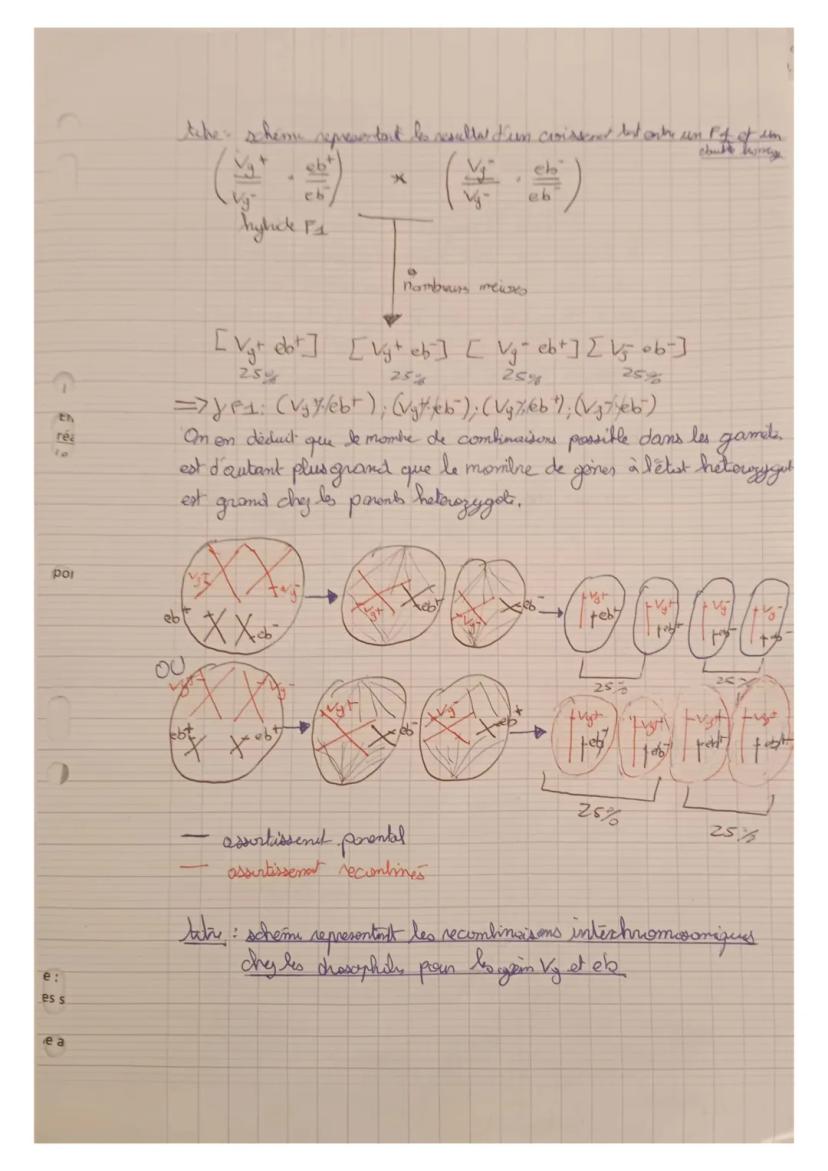 titre : schéma representant les resultat d'un croisement test entre un F1 et un
double homozy
(Vg+/Vg- . eb+/eb-) * (Vg-/Vg- . eb-/eb-)
hybride F1
nombreuses meioses
[Vg+ eb+] [Vg+ eb-] [Vg- eb+] [Vg- eb-]
25% 25% 25% 25%
=> γ F1: (Vg+/eb+); (Vg+/eb-); (Vg-/eb+); (Vg-/eb-)
On en déduit que le nombre de combinaisons possible dans les gamètes
est d'autant plus grand que le nombre de gènes à l'état hétérozygot
est grand chez les parents hétérozygote.
th
rée
poi
Vg+ Vg- Vg+ eb+ Vg- eb- Vg+ Vg+ Vg- Vg-
eb+ eb- eb+ eb+ eb- eb-
25% 25%
OU
Vg+ Vg- Vg+ eb- Vg- eb+ Vg+ Vg+
eb+ eb- eb-
25% 25%
— assortissement parental
— assortissement recombinés
titre : schéma representant les recombinaisons interchromosomiques
chez les drosophiles pour les gèn Vg et eb
e :
es s
e a